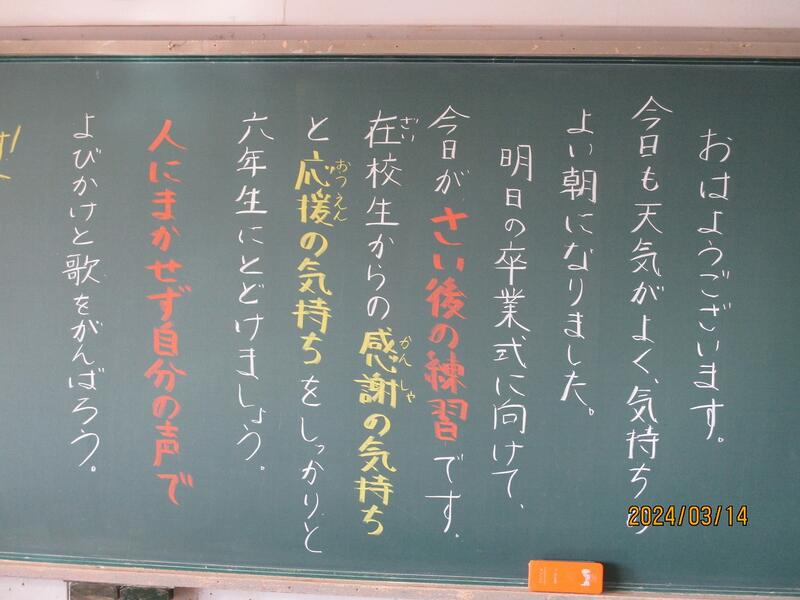 おはようございます。
今日も天気がよく、気持ち
よい朝になりました。
明日の卒業式に向けて、
今日がさい後の練習です。
在校生からの感謝の気持ち
と応援の気持ちをしっかりと
六年生にとどけましょう。
人にまかせず自分の声で
よびかけと歌をがんばろう。
ざい
かんしゃ
おうえん
2024/03/14